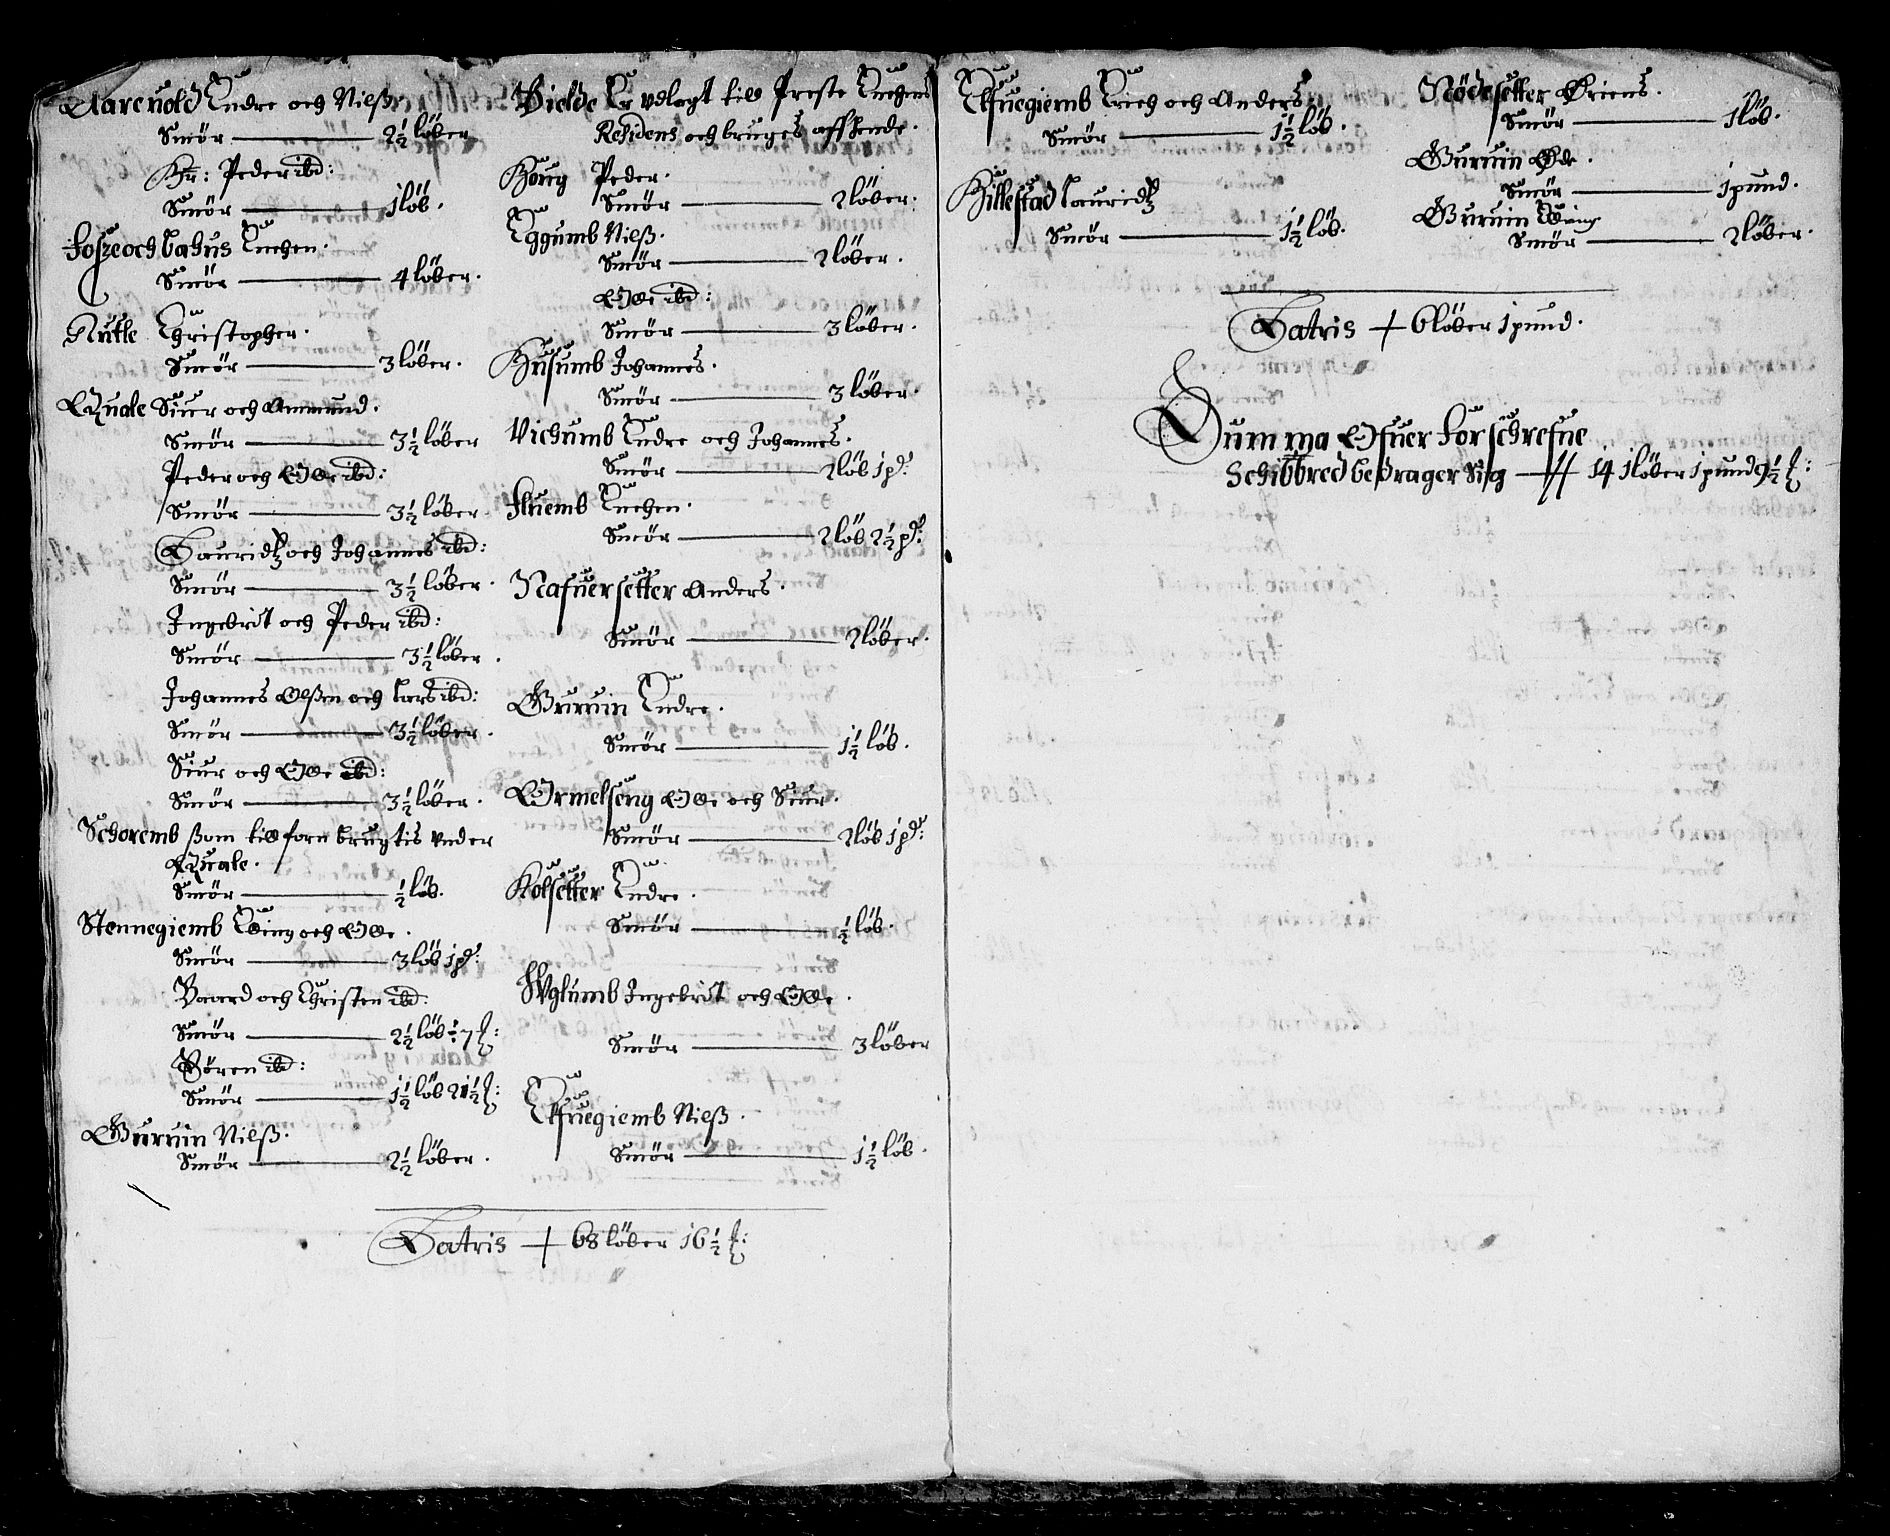 Aareuold Endre och Nielß.
Smör 2½ löber
Hr: Peder ibd:
Smör 1 löb.
Foße och Bahus Enchen.
Smör 4 löber.
Nutle Christopher.
Smör 3 löber.
Quale Siur och Ammund.
Smör 3½ löber
Peder och Olle ibd:
Smör 3½ löber.
Lauridtz och Johannes ibd:
Smör 3½ löber.
Ingebrit och Peder ibd:
Smör 3½ löber.
Johannes Olßen och Lars ibd:
Smör 3½ löber.
Siur och Olle ibd:
Smör 3½ löber.
Schoremb ßom till forn brugtis vnder
Quale.
Smör ½ löb.
Stennegiemb Elling och Olle.
Smör 3 löb 1 pd:
Baard och Christen ibd:
Smör 2½ löb ÷ 7 ℔:
Sören ibd:
Smör 1½ löb 21½ ℔:
Guruin Nielß.
Smör 2½ löber.
Bielde Er vdlagt till Preste Enchens
Residens och bruges affkende.
Houg Peder.
Smör 2 löber.
Eggumb Nielß.
Smör 2 löber.
Olle ibd:
Smör 3 löber.
Husumb Johannes.
Smör 3 löber.
Vichumb Endre och Johannes.
Smör 2 löb 1 pd:
Fluemb Enchen.
Smör 2 löb 2½ pd:
Nafuersetter Anders.
Smör 2 löber.
Guruin Endre.
Smör 1½ löb.
Ormelseng Olle och Siur.
Smör 2 löb 1 pd:
Kolsetter Endre.
Smör ½ löb.
Vglumb Ingebrit och Olle.
Smör 3 löber
Efuegiemb Nielß.
Smör 1½ löb.
Latris 68 löber 16½ ℔:
Efuegiemb Erich och Anders.
Smör 1½ löb.
Hillestad Lauridtz
Smör 1½ löb.
Nödesetter Briens.
Smör 1 löb.
Guruin Øde.
Smör 1 pund.
Guruin Elling
Smör 2 löber.
Latris 6 löber 1 pund.
Summa Ofuer Forschrefne
Schibbred bedrager Sig 141 löber 1 pund 9½ ℔: